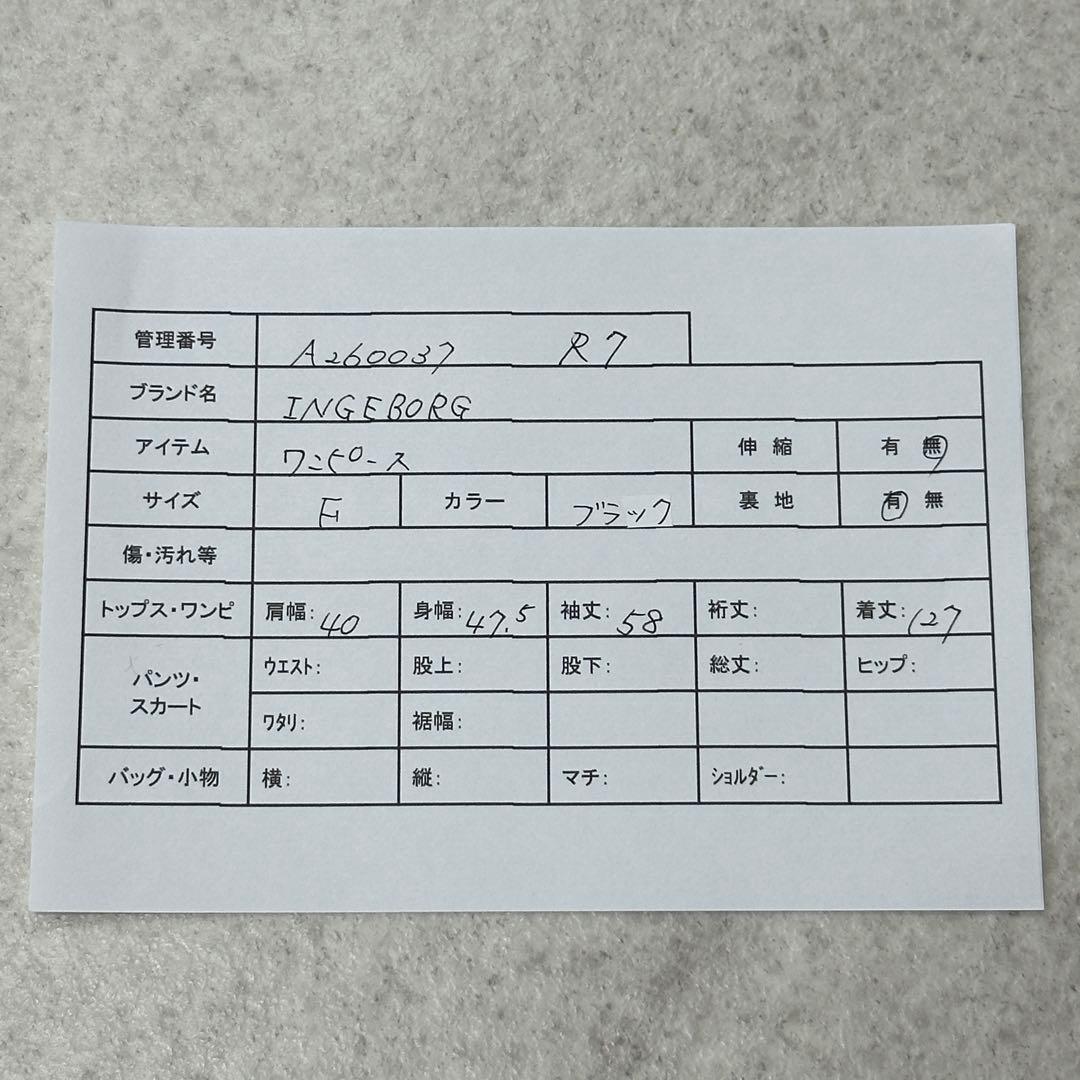 管理番号 A260037 R7
ブランド名 INGEBORG
アイテム ワンピース 伸縮 有 無
サイズ F カラー ブラック 裏地 有 無
傷・汚れ等
トップス・ワンピ 肩幅:40 身幅:47.5 袖丈:58 裄丈: 着丈:127
パンツ・スカート ウエスト: 股上: 股下: 総丈: ヒップ:
ワタリ: 裾幅:
バッグ・小物 横: 縦: マチ: ショルダー: